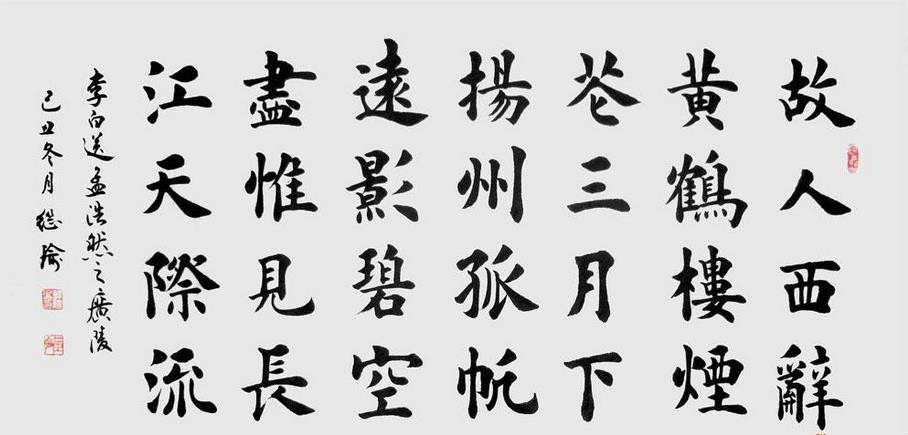 故人西辭
黃鶴樓煙
花三月下
揚州孤帆
遠影碧空
盡惟見長
江天際流
李白送孟浩然之廣陵
己丑冬月繼瑜